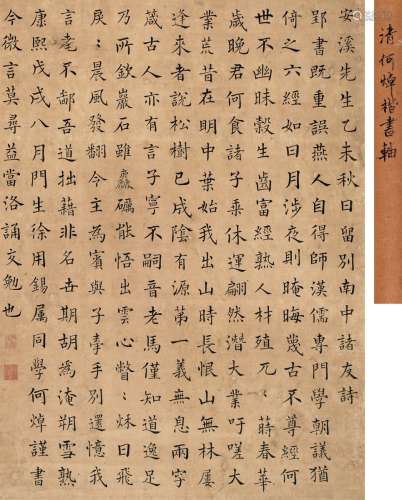 清何焯楷書軸
安溪先生乙未秋日留別南中諸友詩
郢書既重誤燕人自得師漢儒專門學朝議猶
倚之六經如日月涉夜則晻晦幾古不尊經何
世不幽昧穀生齒富經熟人材殖兀〻蔣春華
歲晚君何食諸子乘休運翩然潛大業吁嗟大
業荒昔在明中葉始我出山時長恨山無林屢
逢來者說松樹已成陰有源第一義無息兩字
箴古人亦有言子寧不嗣音老馬僅知道逸足
乃所欽巖石雖麤礪能悟出雲心瞥〻日飛
戾〻晨風發翻今主為賓與子牽手別還憶我
言耄不鄙吾道拙藉非名世期胡為淹朔雪熟
康熙戊戌八月門生徐用錫屬同學何焯謹書
今微言莫尋益當洛誦文勉也